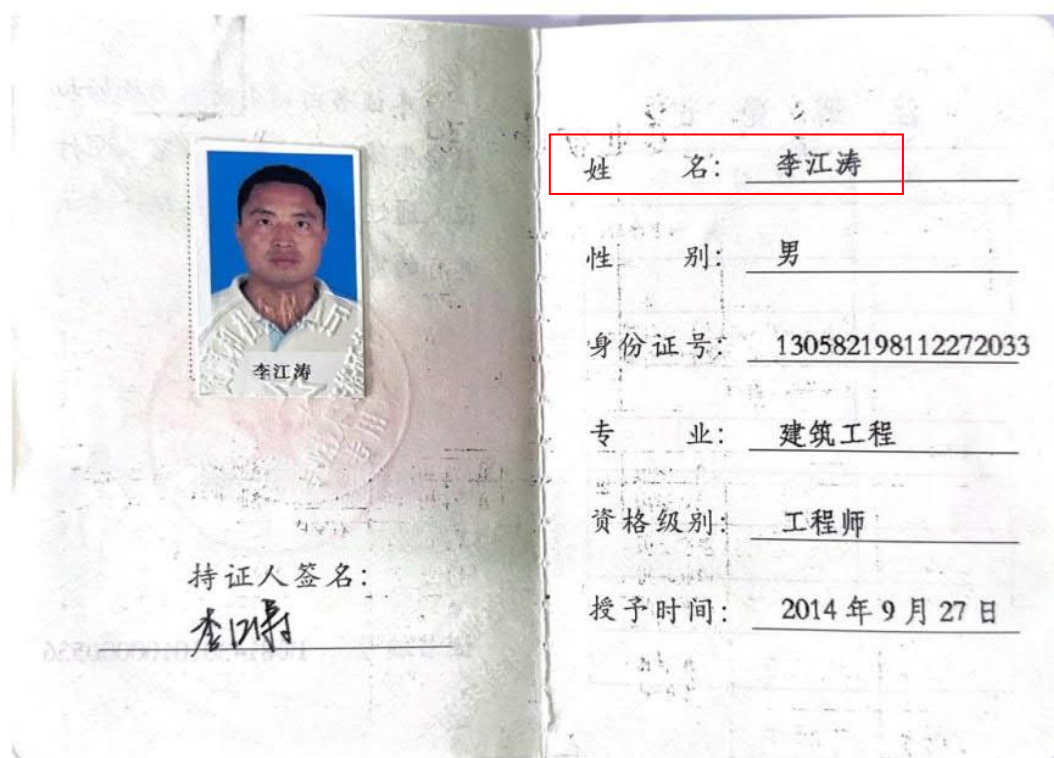 李江涛
持证人签名:
李江涛
姓 名: 李江涛
性 别: 男
身份证号: 130582198112272033
专 业: 建筑工程
资格级别: 工程师
授予时间: 2014 年 9 月 27 日